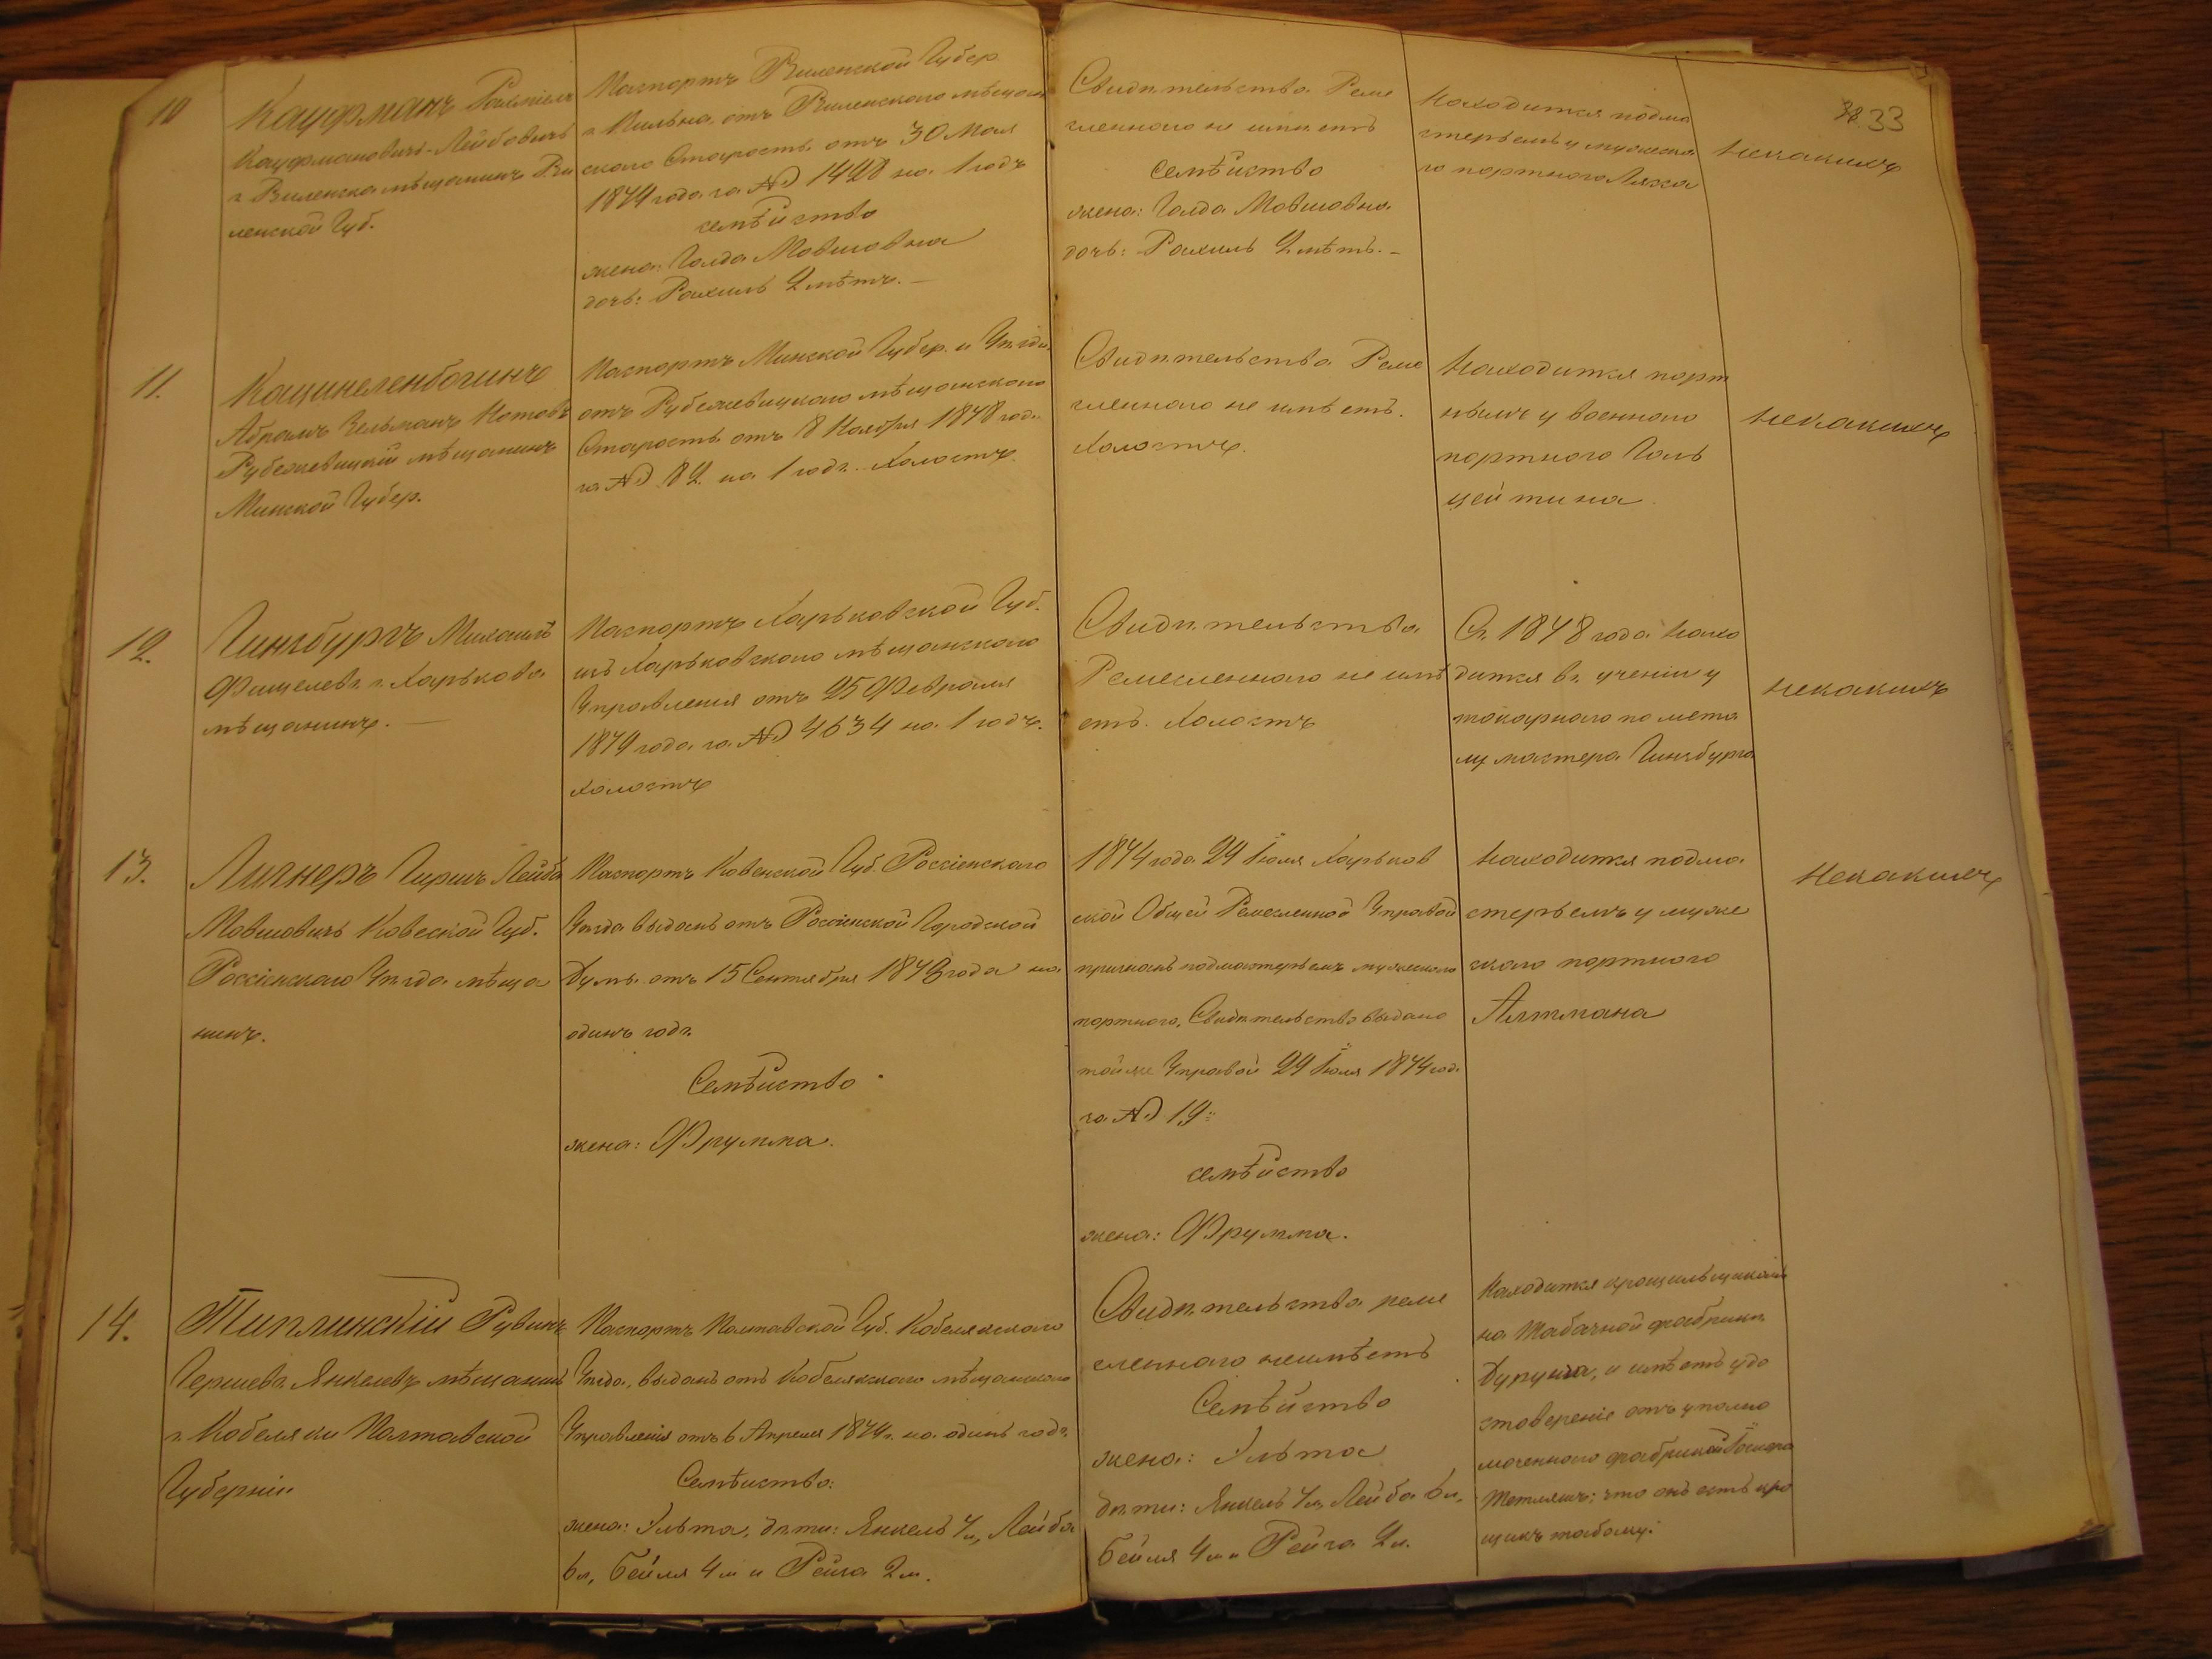 33
10
Кауфманъ Рахміель
Кауфмановичъ-Лейбовичъ
г. Виленска мѣщанинъ Ви
ленской Губ.
Паспортъ Виленской Губер.
г. Вильна отъ Виленскаго мѣщан
скаго Старосты отъ 30 Мая
1879 года за № 1428 на 1 годъ
семѣйство
жена: Голда Мовшовна
дочь: Рахиль 2 лѣтъ. —
Свидѣтельства Реме
сленного не имѣетъ
семѣйство
жена: Голда Мовшовна
дочь: Рахиль 2 лѣтъ. —
Находится подма
стерьемъ у мужска
го портного Ляха
Некакихъ
11.
Каценеленбогинъ
Абрамъ Зельманъ Нотовъ
Рубежевицкій мѣщанинъ
Минской Губер.
Паспортъ Минской Губер. и Уѣзда
отъ Рубежевицкаго мѣщанского
Старосты отъ 8 Ноября 1878 года
за № 82 на 1 годъ. Холостъ.
Свидѣтельства Реме
сленного не имѣетъ.
Холостъ.
Находится порт
нымъ у военного
портного Голь
цейтина
Некакихъ
12.
Гинзбургъ Михаилъ
Фишелевъ г. Харькова
мѣщанинъ. —
Паспортъ Харьковской Губ.
изъ Харьковского мѣщанского
Управления отъ 25 Февраля
1879 года за № 4634 на 1 годъ.
Холостъ
Свидѣтельства
Ремесленного не имѣ
етъ. Холостъ
Съ 1878 года нахо
дится въ ученіи у
токарного по мета
лу мастера Гинзбурга
Некакихъ
13.
Лихнеръ Гиршъ Лейба
Мовшовичъ Ковеской Губ.
Россіенского Уѣзда мѣща
нинъ.
Паспортъ Ковенской Губ. Россіенскаго
Уѣзда выданъ отъ Россіенской Городской
Думы отъ 15 Сентября 1878 года на
одинъ годъ.
Семѣйство
жена: Фрумма.
1874 года 29 Іюля Харьков
ской Общей Ремесленной Управой
признанъ подмастерьемъ мужескаго
портного, Свидѣтельство выдано
той же Управой 29 Іюля 1874 год.
за № 19
семѣйство
жена: Фрумма.
Находится подма
стерьемъ у муже
скаго портного
Алтмана
Некакихъ
14.
Типлинскій Рувинъ
Гершевъ Янкелевъ мѣщанинъ
г. Кобеляки Полтавской
Губерніи
Паспортъ Полтавской Губ. Кобелякского
Уѣзда, выданъ отъ Кобелякского мѣщанского
Управленія отъ 6 Апреля 1879 г. на одинъ годъ.
Семѣйство:
жена: Эльта, дѣти: Янкель 7 л, Лейба
6 л, Бейля 4 л и Рейза 2 л.
Свидѣтельства реме
сленного неимѣетъ
Семѣйство
жена: Эльта
дѣти: Янкель 7 л, Лейба 6 л,
Бейля 4 л и Рейза 2 л.
Находится крошильщикомъ
на Табачной фабрики
Дуруна, и имѣетъ удо
стовереніе отъ уполно
моченного фабрикой
что онъ есть кро
щикъ табаку.